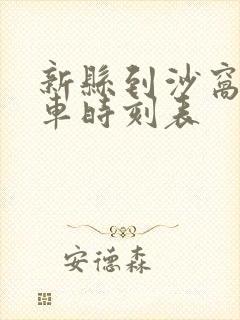 新縣到沙窩
車時刻表
安德森